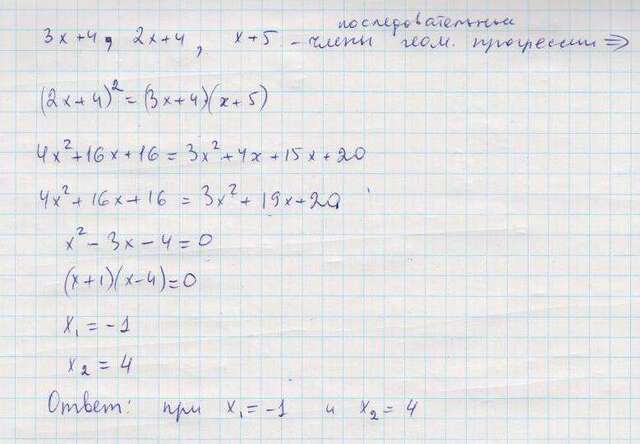 3x+4, 2x+4, x+5 - последовательные члены геом. прогрессии ⇒
(2x+4)² = (3x+4)(x+5)
4x²+16x+16 = 3x²+4x+15x+20
4x²+16x+16 = 3x²+19x+20
x²-3x-4=0
(x+1)(x-4)=0
x₁ = -1
x₂ = 4
Ответ: при x₁=-1 и x₂=4